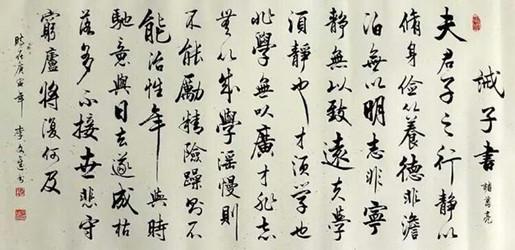 誡子書
諸葛亮
夫君子之行靜以
脩身儉以養德非澹
泊無以明志非寧
靜無以致遠夫學
須靜也才須學也
非學無以廣才非志
無以成學滛慢則
不能勵精險躁則不
能治性年與時
馳意與日去遂成枯
落多不接世悲守
窮廬將復何及
時在庚寅年 李文書